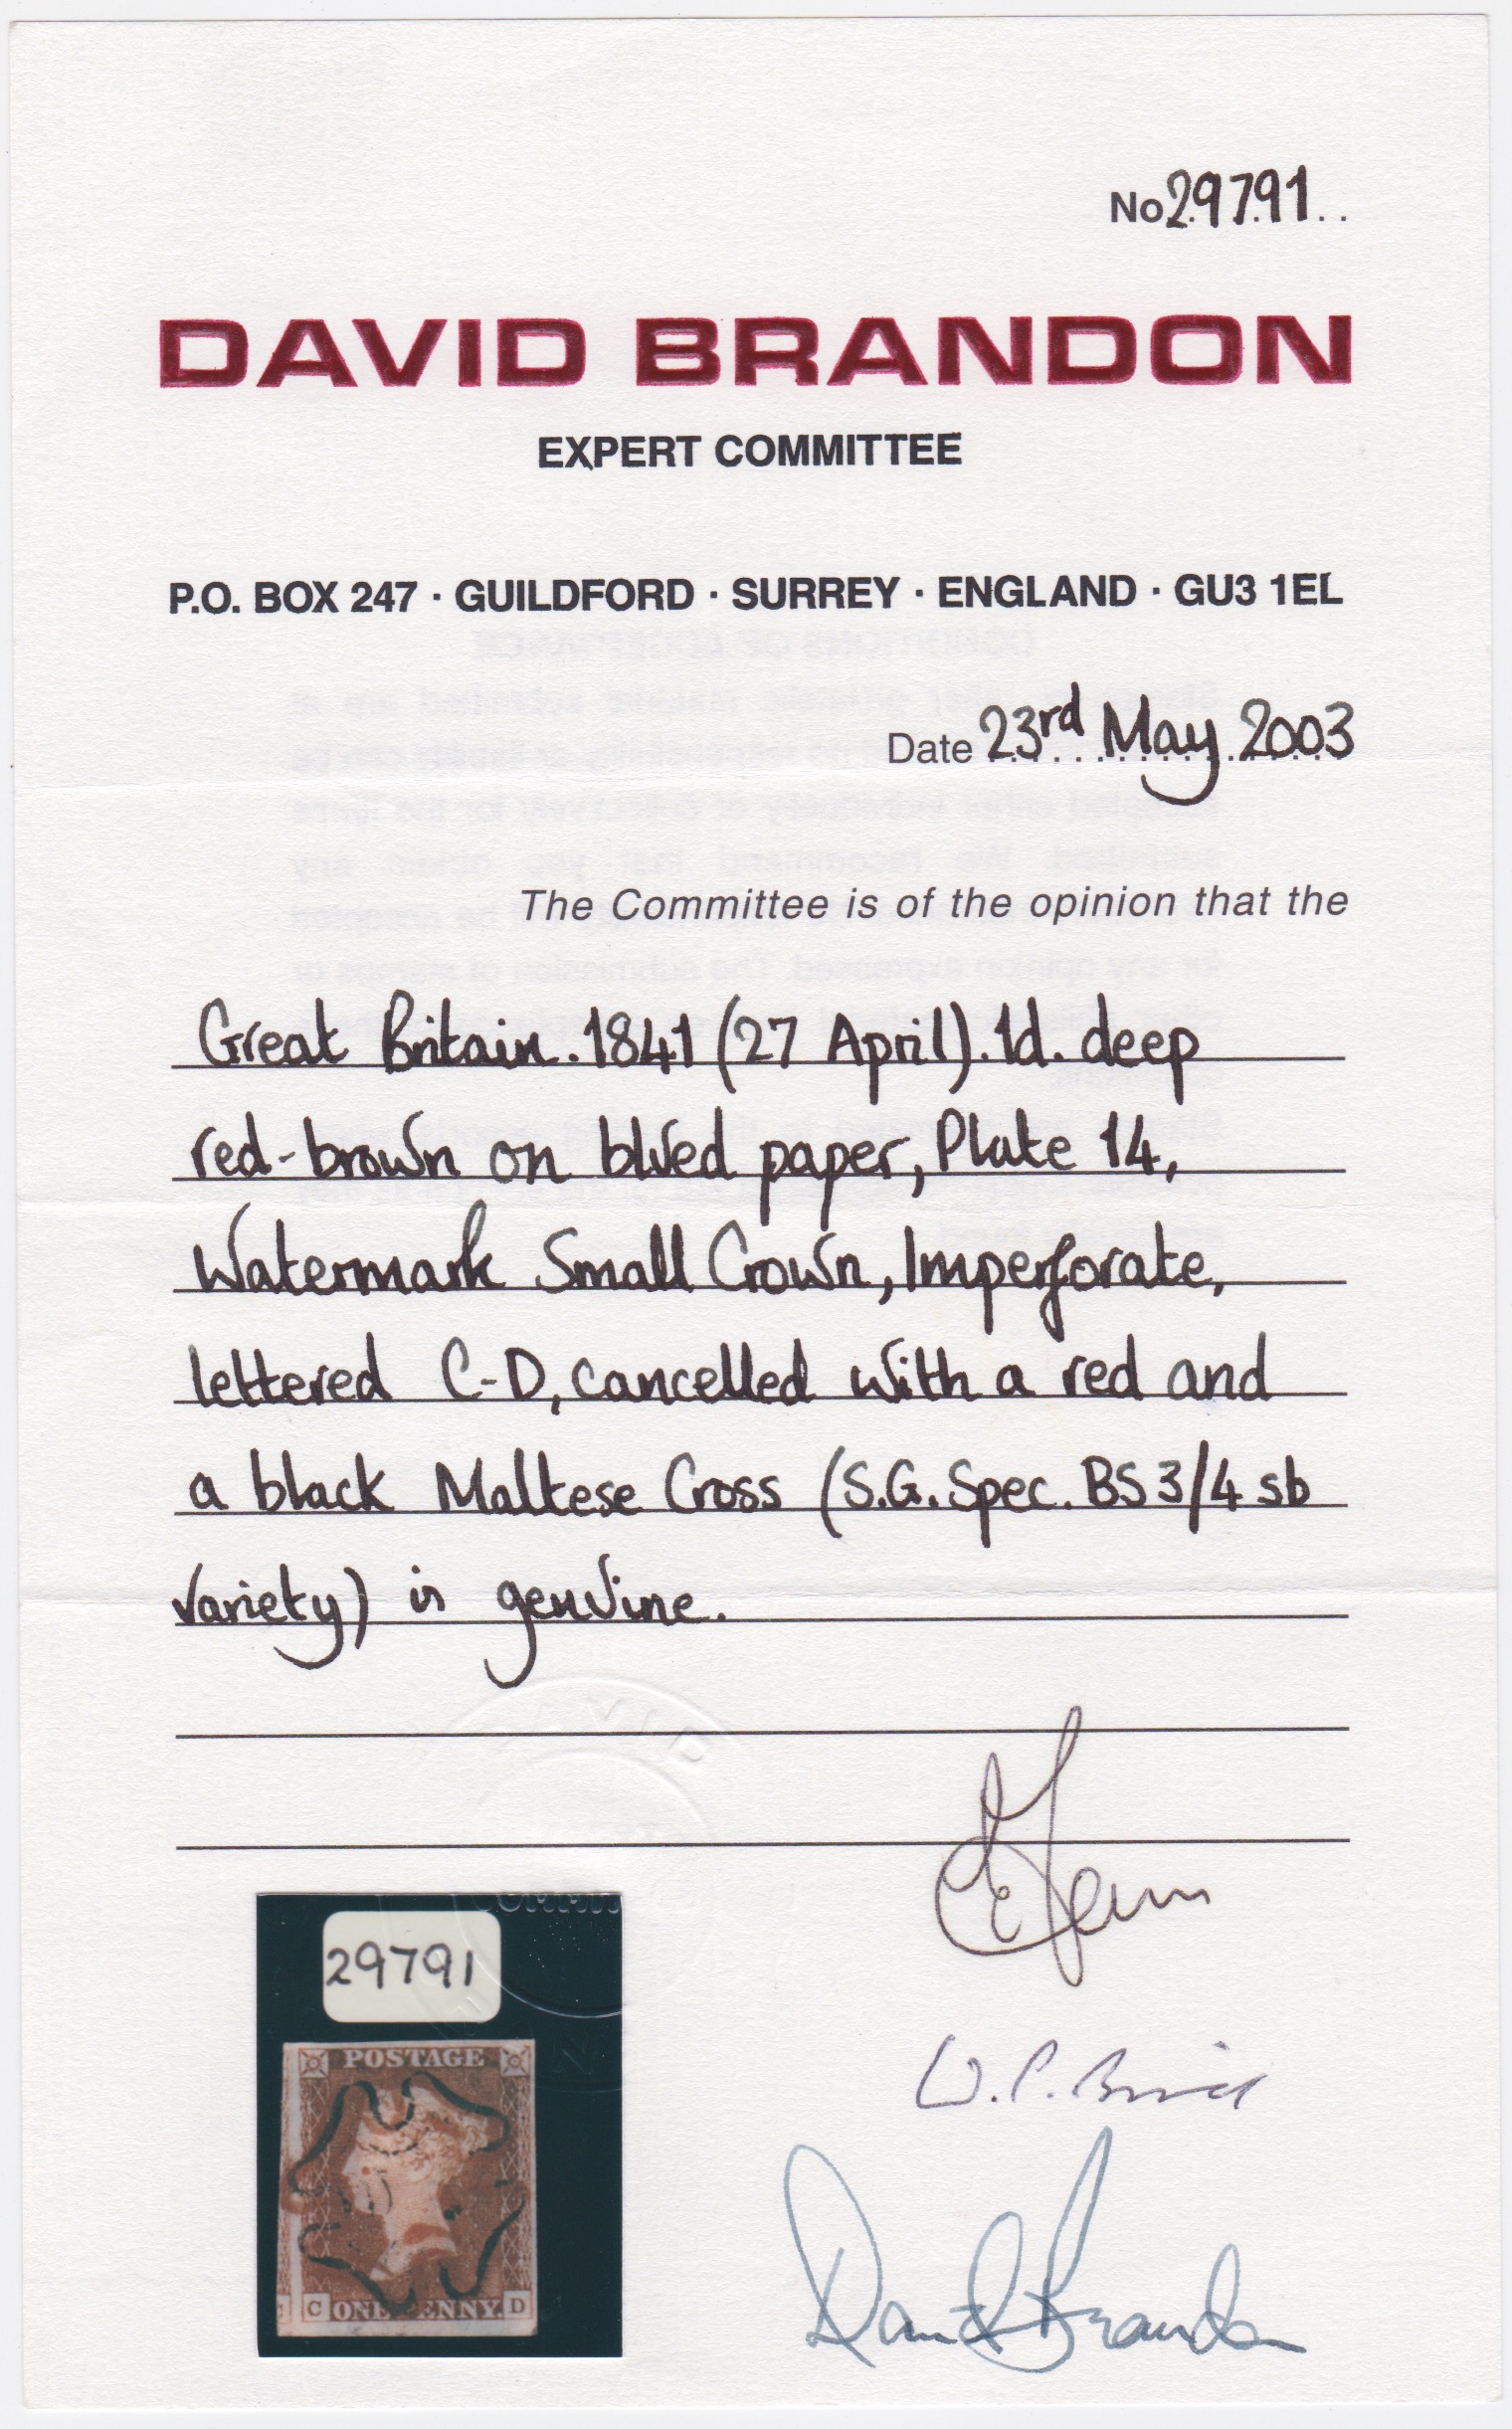 No 29791..
DAVID BRANDON
EXPERT COMMITTEE
P.O. BOX 247 · GUILDFORD · SURREY · ENGLAND · GU3 1EL
Date 23rd May 2003
The Committee is of the opinion that the
Great Britain. 1841 (27 April). 1d. deep
red-brown on blued paper, Plate 14,
Watermark Small Crown, Imperforate,
lettered C-D, cancelled with a red and
a black Maltese Cross (S.G. Spec. BS 3/4 sb
variety) is genuine.
29791
POSTAGE
C ONE PENNY. D
David Brandon